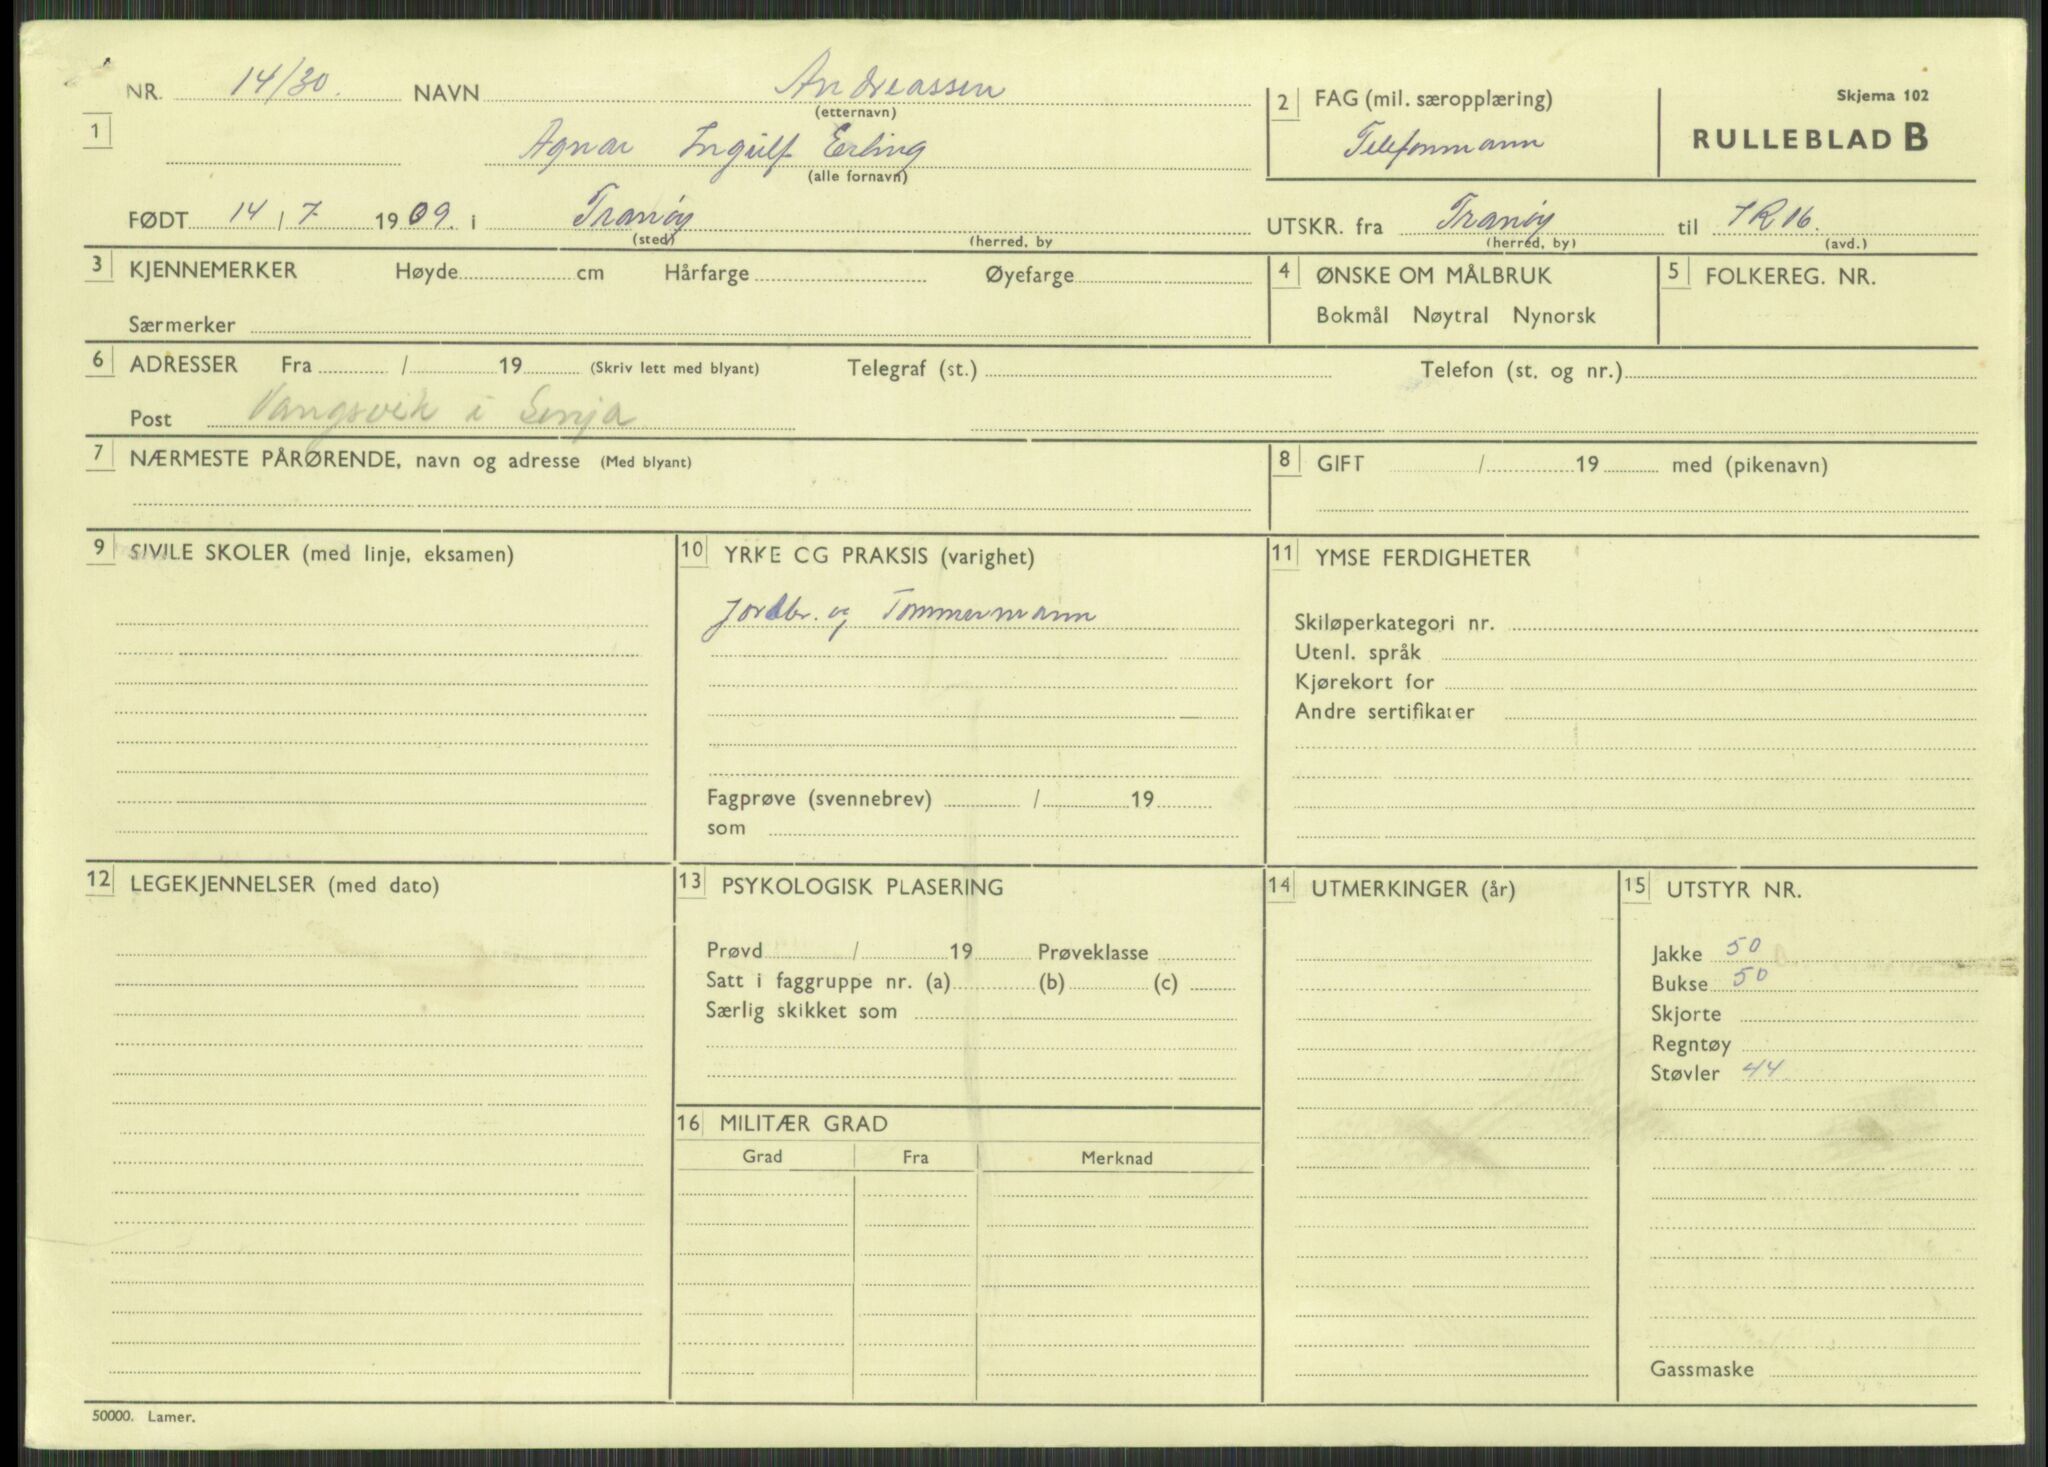 NR. 14/30. NAVN Andreassen
(etternavn)
1 Agnar Ingulf Erling
(alle fornavn)
2 FAG (mil. særopplæring)
Telefonmann
Skjema 102
RULLEBLAD B
FØDT 14 / 7 1909. i Tranøy
(sted) (herred, by
UTSKR. fra Tranøy til IR 16.
(herred, by) (avd.)
3 KJENNEMERKER Høyde cm Hårfarge Øyefarge
Særmerker
4 ØNSKE OM MÅLBRUK
Bokmål Nøytral Nynorsk
5 FOLKEREG. NR.
6 ADRESSER Fra / 19 (Skriv lett med blyant) Telegraf (st.) Telefon (st. og nr.)
Post Vangsvik i Senja
7 NÆRMESTE PÅRØRENDE, navn og adresse (Med blyant)
8 GIFT / 19 med (pikenavn)
9 SIVILE SKOLER (med linje, eksamen)
10 YRKE CG PRAKSIS (varighet)
Jordbr. og Tømmermann
Fagprøve (svennebrev) / 19
som
11 YMSE FERDIGHETER
Skiløperkategori nr.
Utenl. språk
Kjørekort for
Andre sertifikater
12 LEGEKJENNELSER (med dato)
13 PSYKOLOGISK PLASERING
Prøvd / 19 Prøveklasse
Satt i faggruppe nr. (a) (b) (c)
Særlig skikket som
14 UTMERKINGER (år)
15 UTSTYR NR.
Jakke 50
Bukse 50
Skjorte
Regntøy
Støvler 44
Gassmaske
16 MILITÆR GRAD
Grad Fra Merknad
50000. Lamer.